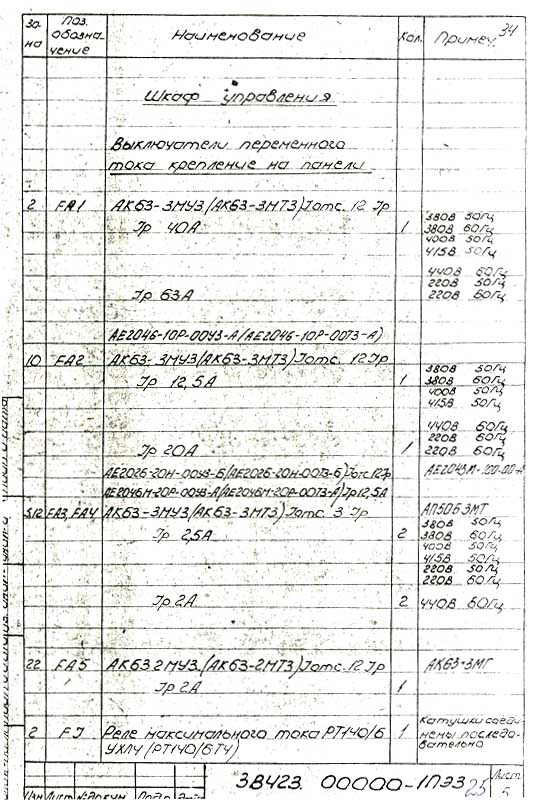 34
Зо- на Поз. обозна- чение Наименование Кол. Примеч.
Шкаф управления
Выключатели переменного
тока крепление на панели
2 FA1 АК63-3МУ3/АК63-3МТ3) Iотс. 12 Iр
Iр 40А 1 380В 50Гц
380В 60Гц
400В 50Гц
415В 50Гц
440В 60Гц
220В 50Гц
Iр 63А 220В 60Гц
АЕ2046-10Р-00У3-А(АЕ2046-10Р-00Т3-А)
10 FA2 АК63-3МУ3/АК63-3МТ3) Iотс. 12 Iр
380В 50Гц
Iр 12,5А 1 380В 60Гц
400В 50Гц
415В 50Гц
440В 60Гц
220В 60Гц
Iр 20А 1 220В 60Гц
АЕ2026-20Н-00У3-Б/АЕ2026-20Н-00Т3-Б) Iотс 12Iр
АЕ2046М-20Р-00У3-А/АЕ2046М-20Р-00Т3-А) Iр 12,5А
5,12 FA3, FA4 АК63-3МУ3/АК63-3МТ3) Iотс. 3 Iр АП50Б 3МТ
380В 50Гц
Iр 2,5А 2 380В 60Гц
400В 50Гц
415В 50Гц
220В 50Гц
220В 60Гц
Iр 2А 2 440В 60Гц
22 FA5 АК63 2МУ3 (АК63-2МТ3) Iотс. 12 Iр АК63-3МГ
Iр 2А 1
2 FJ Реле максимального тока РТ140/6 1 Катушки соеди-
УХЛ4 (РТ140/6Т4) нены последо-
вательно
3В423. 00000-1ПЭ3 25
Лист
5
Изм Лист № докум. Подп. Дата